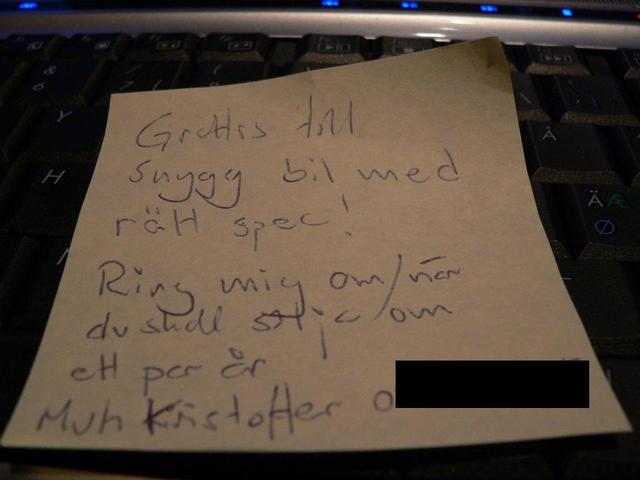 Grattis till
snygg bil med
rätt spec!
Ring mig om/när
du skall sälja /om
ett par år
Mvh Kristoffer 0
6
Y
H
Å
Ä Æ
Ø